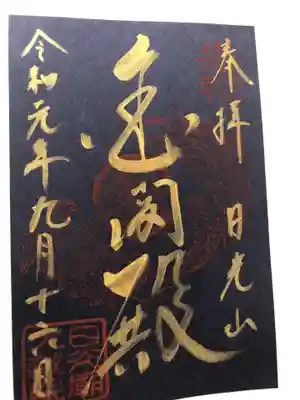 奉拝 日光山
金閣殿
令和元年九月十六日